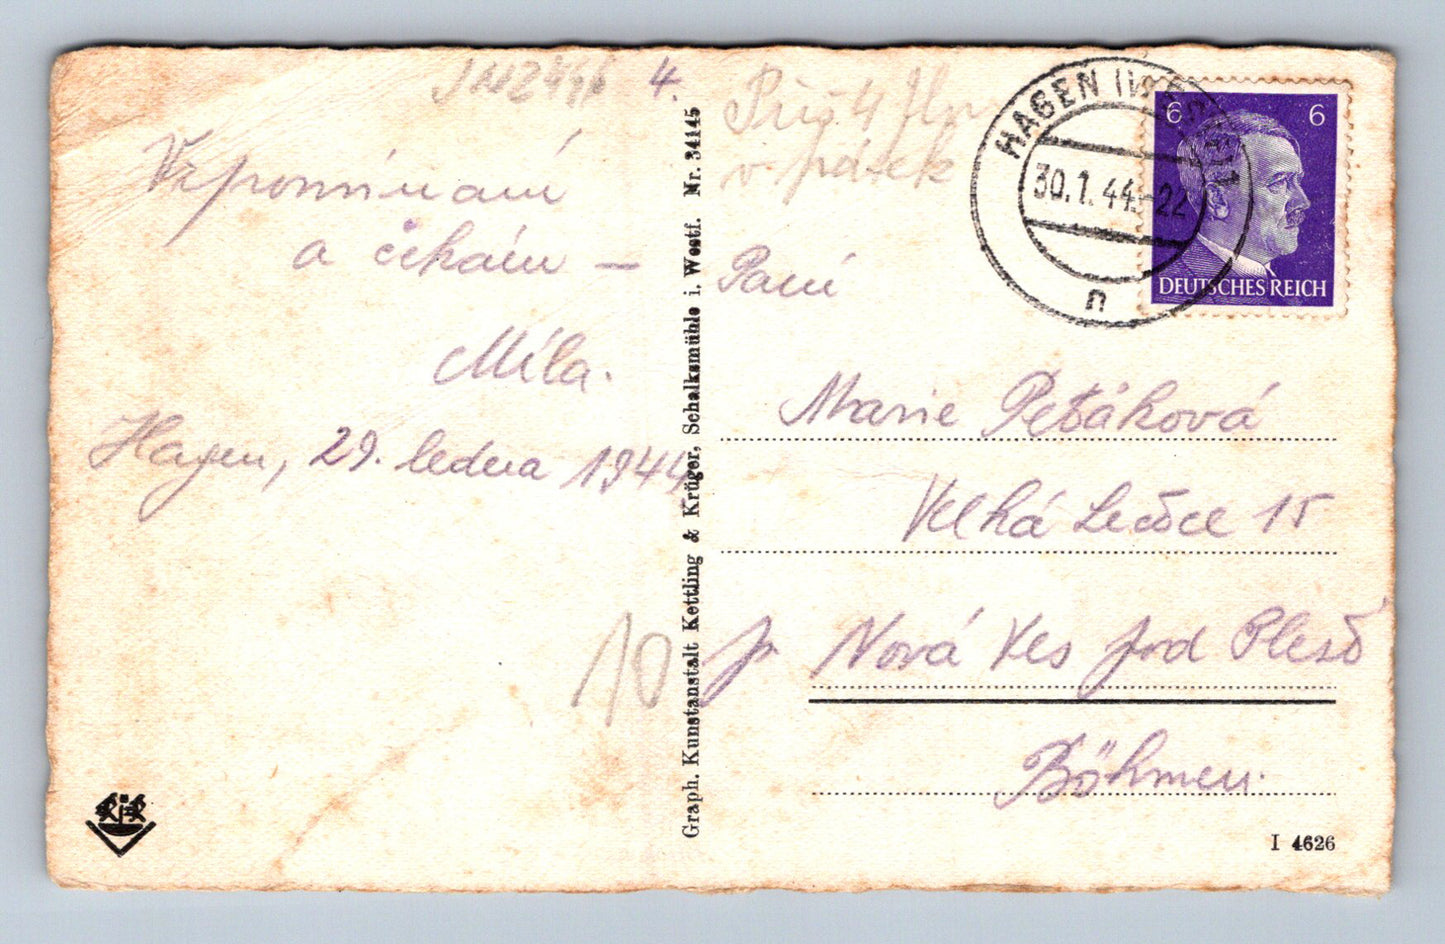 4.
Vzpomínání
a čekání —
Míla.
Hagen, 29. ledna 1944
10
Graph. Kunstanstalt Kettling & Krüger, Schalksmühle i. Westf. Nr. 34145
v pátek
HAGEN
30.1.44.-22
n
6 6
DEUTSCHES REICH
Paní
Marie Peťáková
Velká Lečice 15
p. Nová Ves pod Pleší
Böhmen.
I 4626